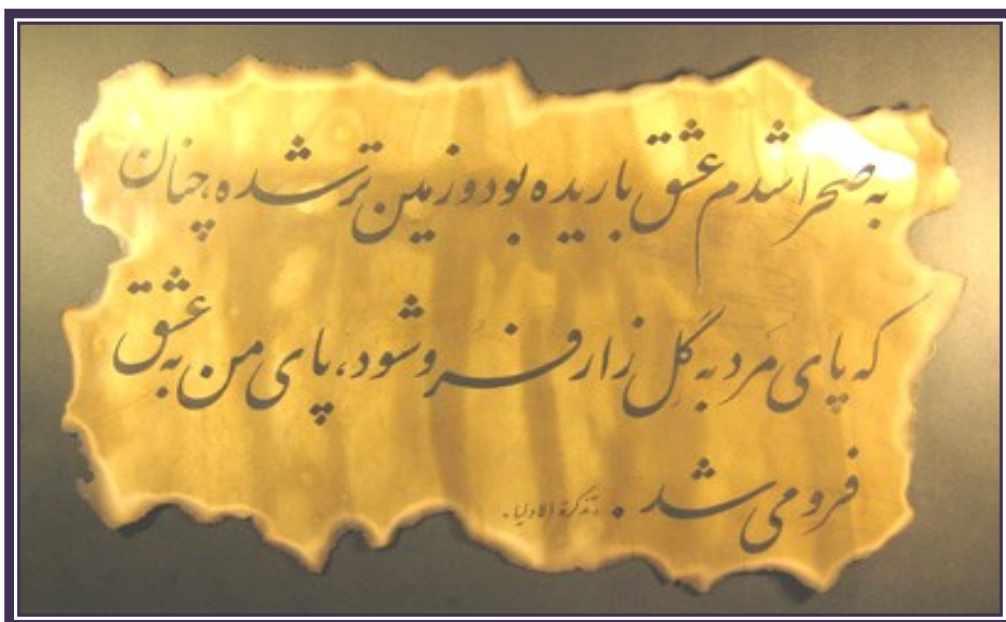 به صحرا شدم عشق باریده بود و زمین تر شده، چنان
که پای مَرد به گل زار فرو شود، پای من به عشق
فرو می شد. تذکرة الاولیا.